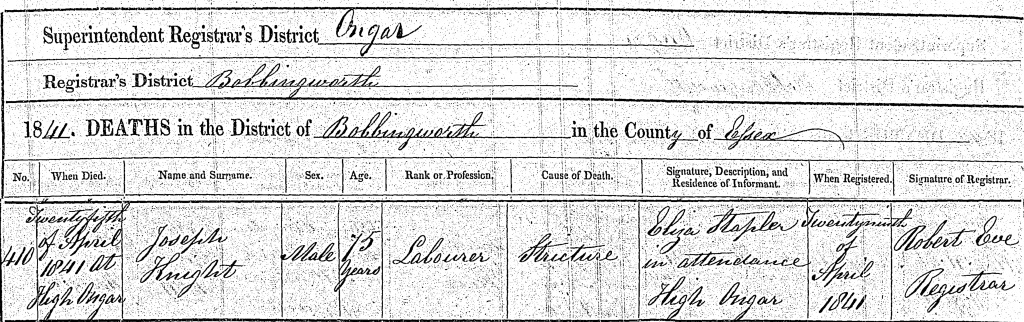 Superintendent Registrar's District Ongar
Registrar's District Bobbingworth
1841. DEATHS in the District of Bobbingworth in the County of Essex
No. When Died. Name and Surname. Sex. Age. Rank or Profession. Cause of Death. Signature, Description, and Residence of Informant. When Registered. Signature of Registrar.
410
Twentyfifth
of April
1841 at
High Ongar
Joseph
Knight
Male
75
years
Labourer
Stricture
Eliza Stapler
in attendance
High Ongar
Twentyninth
of
April
1841
Robert Eve
Registrar